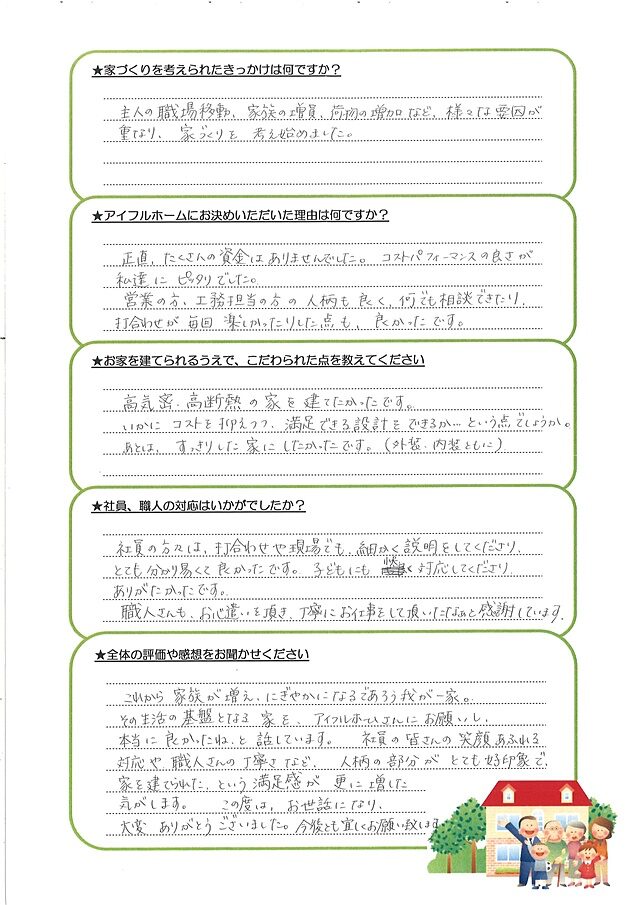 ★家づくりを考えられたきっかけは何ですか？
主人の職場移動、家族の増員、荷物の増加など、様々な要因が
重なり、家づくりを考え始めました。
★アイフルホームにお決めいただいた理由は何ですか？
正直、たくさんの資金はありませんでした。コストパフィーマンスの良さが
私達にピッタリでした。
営業の方、工務担当の方の人柄も良く、何でも相談できたり、
打合わせが毎回楽しかったりした点も、良かったです。
★お家を建てられるうえで、こだわられた点を教えてください
高気密・高断熱の家を建てたかったです。
いかにコストを抑えつつ、満足できる設計をできるか…という点でしょうか。
あとは、すっきりした家にしたかったです。（外装・内装ともに）
★社員、職人の対応はいかがでしたか？
社員の方々は、打合わせや現場でも、細かく説明をしてくださり、
とても分かり易くて良かったです。子どもにも 対応してくださり
ありがたかったです。
職人さんも、お心遣いを頂き、丁寧にお仕事をして頂いたなぁと感謝しています。
★全体の評価や感想をお聞かせください
これから家族が増え、にぎやかになるであろう我が一家。
その生活の基盤となる家を、アイフルホームさんにお願いし、
本当に良かったね、と話しています。 社員の皆さんの笑顔あふれる
対応や、職人さんの丁寧さなど、人柄の部分がとても好印象で、
家を建てられた、という満足感が更に増した
気がします。 この度は、お世話になり、
大変ありがとうございました。今後とも宜しくお願い致します